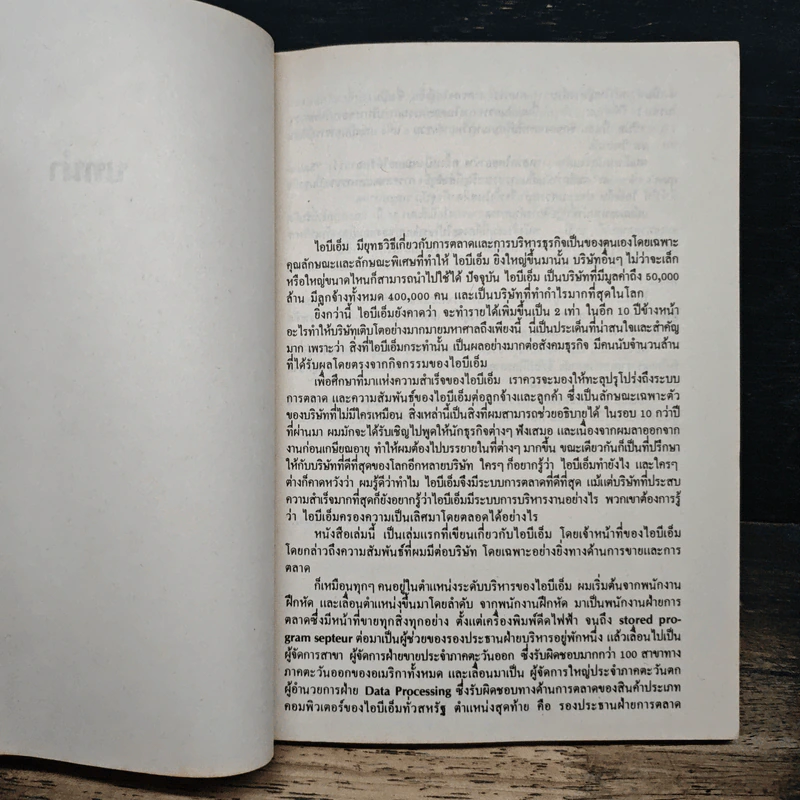 ไอบีเอ็ม มียุทธวิธีเกี่ยวกับการตลาดและการบริหารธุรกิจเป็นของตนเองโดยเฉพาะ
คุณลักษณะและลักษณะพิเศษที่ทำให้ ไอบีเอ็ม ยิ่งใหญ่ขึ้นมานั้น บริษัทอื่นๆ ไม่ว่าจะเล็ก
หรือใหญ่ขนาดไหนก็สามารถนำไปใช้ได้ ปัจจุบัน ไอบีเอ็ม เป็นบริษัทที่มีมูลค่าถึง 50,000
ล้าน มีลูกจ้างทั้งหมด 400,000 คน และเป็นบริษัทที่ทำกำไรมากที่สุดในโลก
ยิ่งกว่านี้ ไอบีเอ็มยังคาดว่า จะทำรายได้เพิ่มขึ้นเป็น 2 เท่า ในอีก 10 ปีข้างหน้า
อะไรทำให้บริษัทเติบโตอย่างมากมายมหาศาลถึงเพียงนี้ นี่เป็นประเด็นที่น่าสนใจและสำคัญ
มาก เพราะว่า สิ่งที่ไอบีเอ็มกระทำนั้น เป็นผลอย่างมากต่อสังคมธุรกิจ มีคนนับจำนวนล้าน
ที่ได้รับผลโดยตรงจากกิจกรรมของไอบีเอ็ม
เพื่อศึกษาที่มาแห่งความสำเร็จของไอบีเอ็ม เราควรจะมองให้ทะลุปรุโปร่งถึงระบบ
การตลาด และความสัมพันธ์ของไอบีเอ็มต่อลูกจ้างและลูกค้า ซึ่งเป็นลักษณะเฉพาะตัว
ของบริษัทที่ไม่มีใครเหมือน สิ่งเหล่านี้เป็นสิ่งที่ผมสามารถช่วยอธิบายได้ ในรอบ 10 กว่าปี
ที่ผ่านมา ผมมักจะได้รับเชิญไปพูดให้นักธุรกิจต่างๆ ฟังเสมอ และเนื่องจากผมลาออกจาก
งานก่อนเกษียณอายุ ทำให้ผมต้องไปบรรยายในที่ต่างๆ มากขึ้น ขณะเดียวกันก็เป็นที่ปรึกษา
ให้กับบริษัทที่ดีที่สุดของโลกอีกหลายบริษัท ใครๆ ก็อยากรู้ว่า ไอบีเอ็มทำยังไง และใครๆ
ต่างก็คาดหวังว่า ผมรู้ดีว่าทำไม ไอบีเอ็มจึงมีระบบการตลาดที่ดีที่สุด แม้แต่บริษัทที่ประสบ
ความสำเร็จมากที่สุดก็ยังอยากรู้ว่าไอบีเอ็มมีระบบการบริหารงานอย่างไร พวกเขาต้องการรู้
ว่า ไอบีเอ็มครองความเป็นเลิศมาโดยตลอดได้อย่างไร
หนังสือเล่มนี้ เป็นเล่มแรกที่เขียนเกี่ยวกับไอบีเอ็ม โดยเจ้าหน้าที่ของไอบีเอ็ม
โดยกล่าวถึงความสัมพันธ์ที่ผมมีต่อบริษัท โดยเฉพาะอย่างยิ่งทางด้านการขายและการ
ตลาด
ก็เหมือนทุกๆ คนอยู่ในตำแหน่งระดับบริหารของไอบีเอ็ม ผมเริ่มต้นจากพนักงาน
ฝึกหัด และเลื่อนตำแหน่งขึ้นมาโดยลำดับ จากพนักงานฝึกหัด มาเป็นพนักงานฝ่ายการ
ตลาดซึ่งมีหน้าที่ขายทุกสิ่งทุกอย่าง ตั้งแต่เครื่องพิมพ์ดีดไฟฟ้า จนถึง stored pro-
gram septeur ต่อมาเป็นผู้ช่วยของรองประธานฝ่ายบริหารอยู่พักหนึ่ง แล้วเลื่อนไปเป็น
ผู้จัดการสาขา ผู้จัดการฝ่ายขายประจำภาคตะวันออก ซึ่งรับผิดชอบมากกว่า 100 สาขาทาง
ภาคตะวันออกของอเมริกาทั้งหมด และเลื่อนมาเป็น ผู้จัดการใหญ่ประจำภาคตะวันตก
ผู้อำนวยการฝ่าย Data Processing ซึ่งรับผิดชอบทางด้านการตลาดของสินค้าประเภท
คอมพิวเตอร์ของไอบีเอ็มทั่วสหรัฐ ตำแหน่งสุดท้าย คือ รองประธานฝ่ายการตลาด